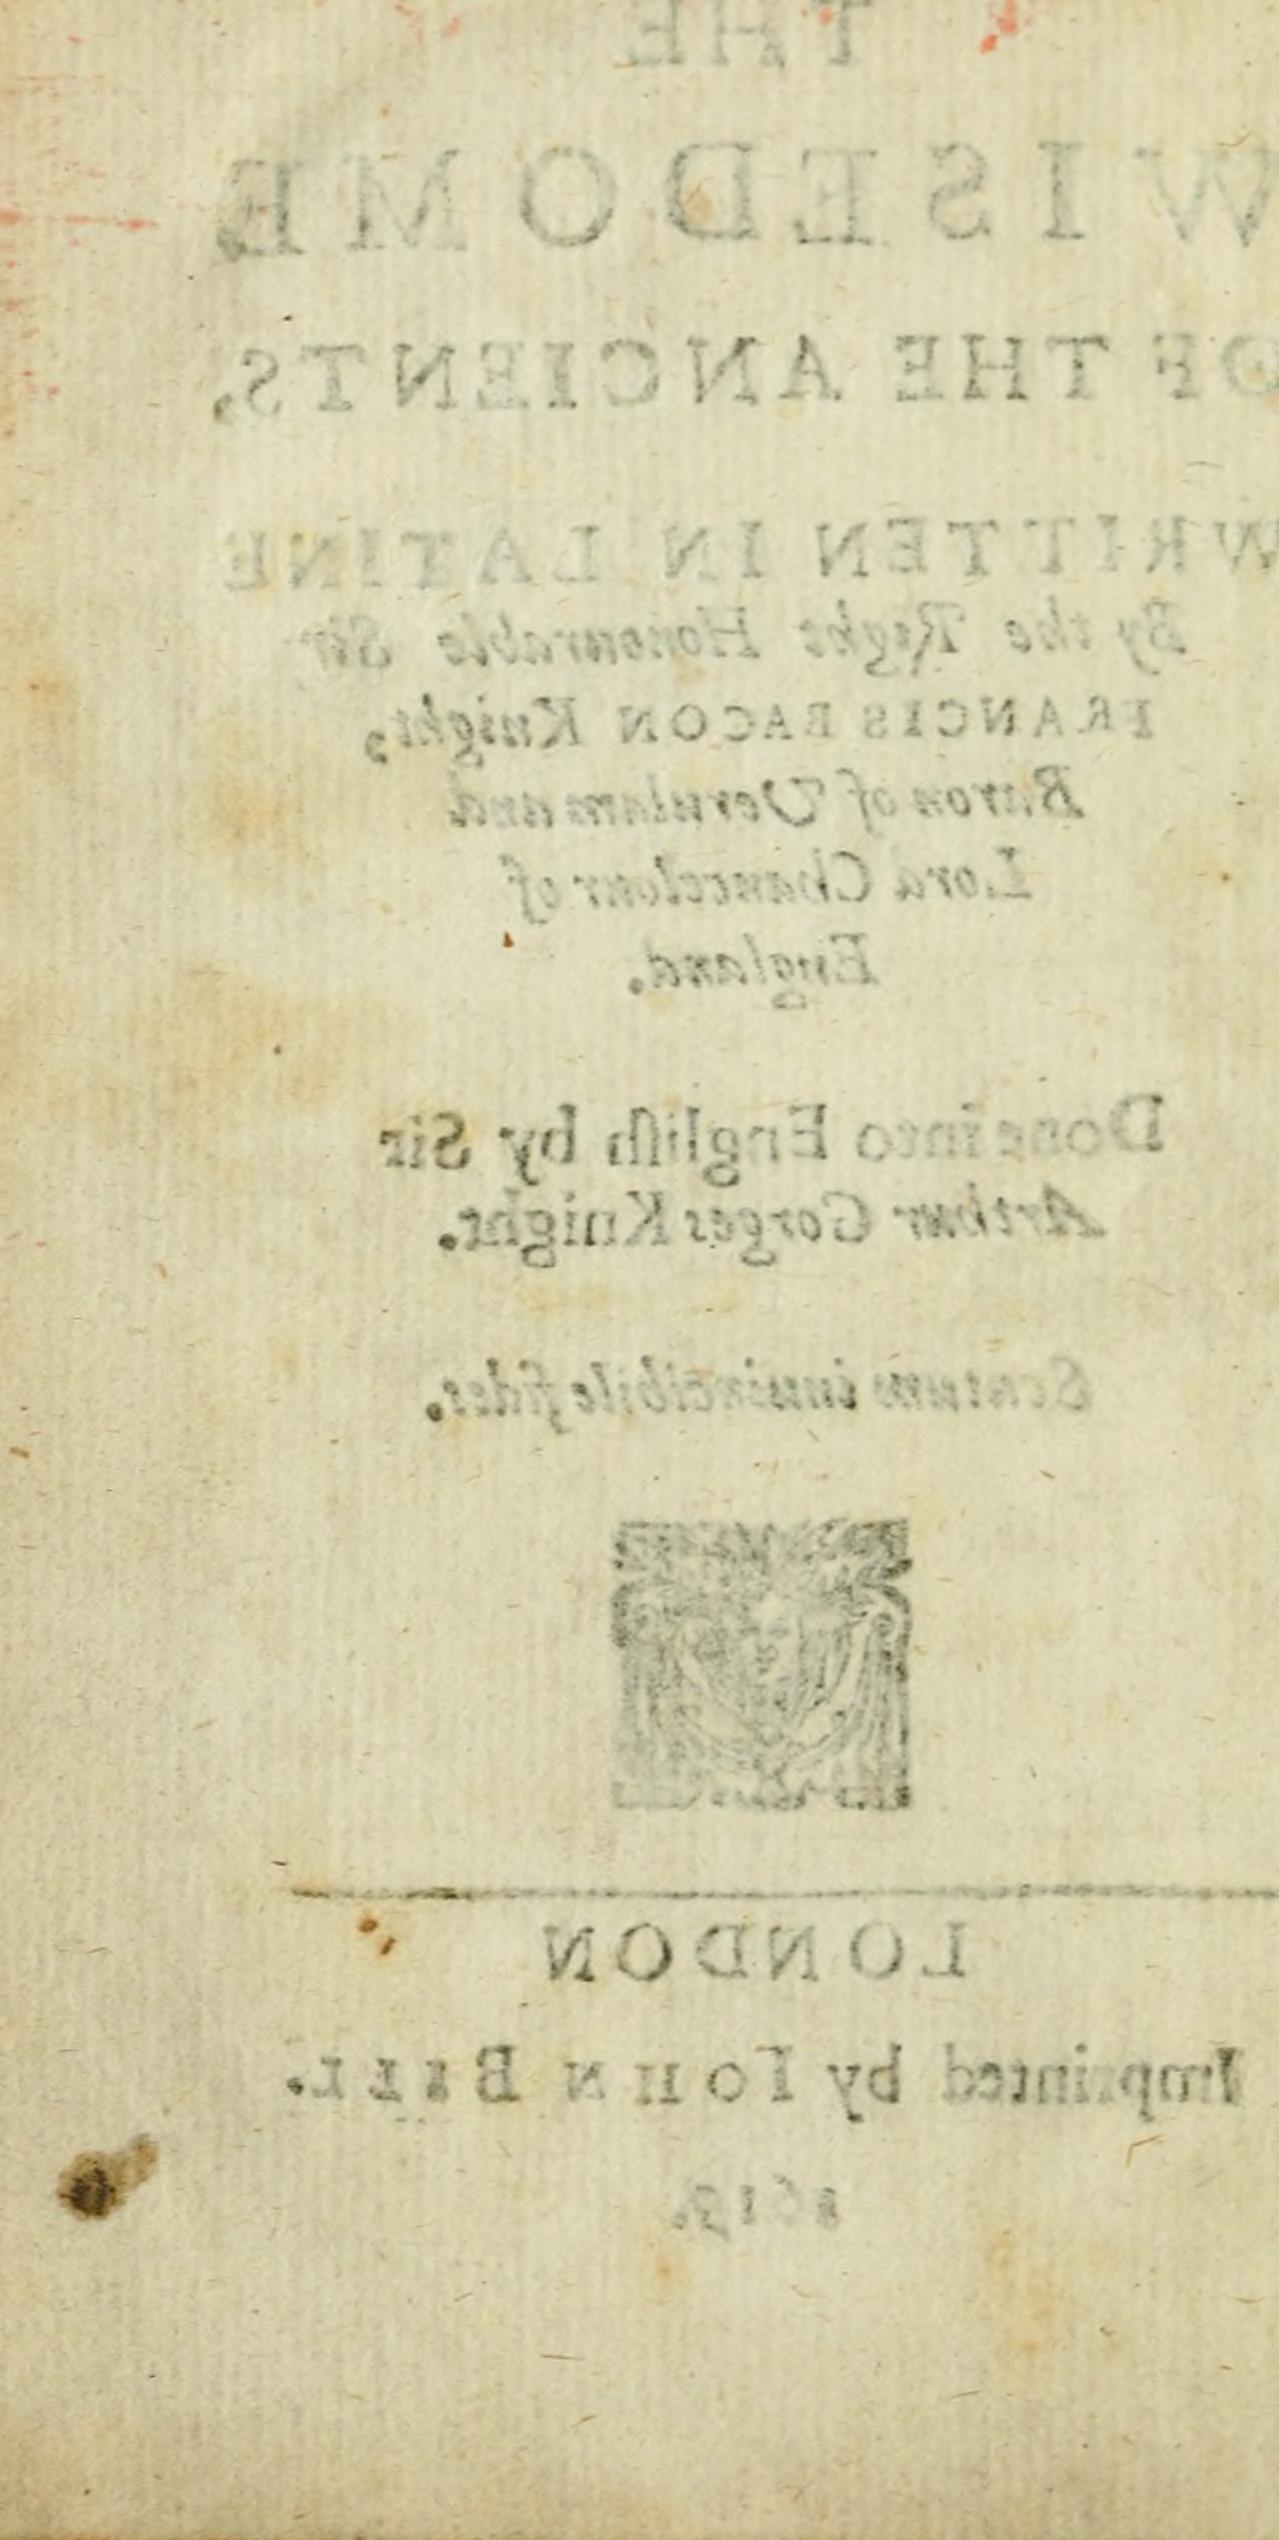 THE
WISEDOME
OF THE ANCIENTS,
WRITTEN IN LATINE
By the Right Honourable Sir
FRANCIS BACON Knight,
Baron of Verulam and
Lord Chancelour of
England.
Done into Engliſh by Sir
Arthur Gorges Knight.
Scutum inuincibile fides.
LONDON
Imprinted by IOHN BILL.
1619.